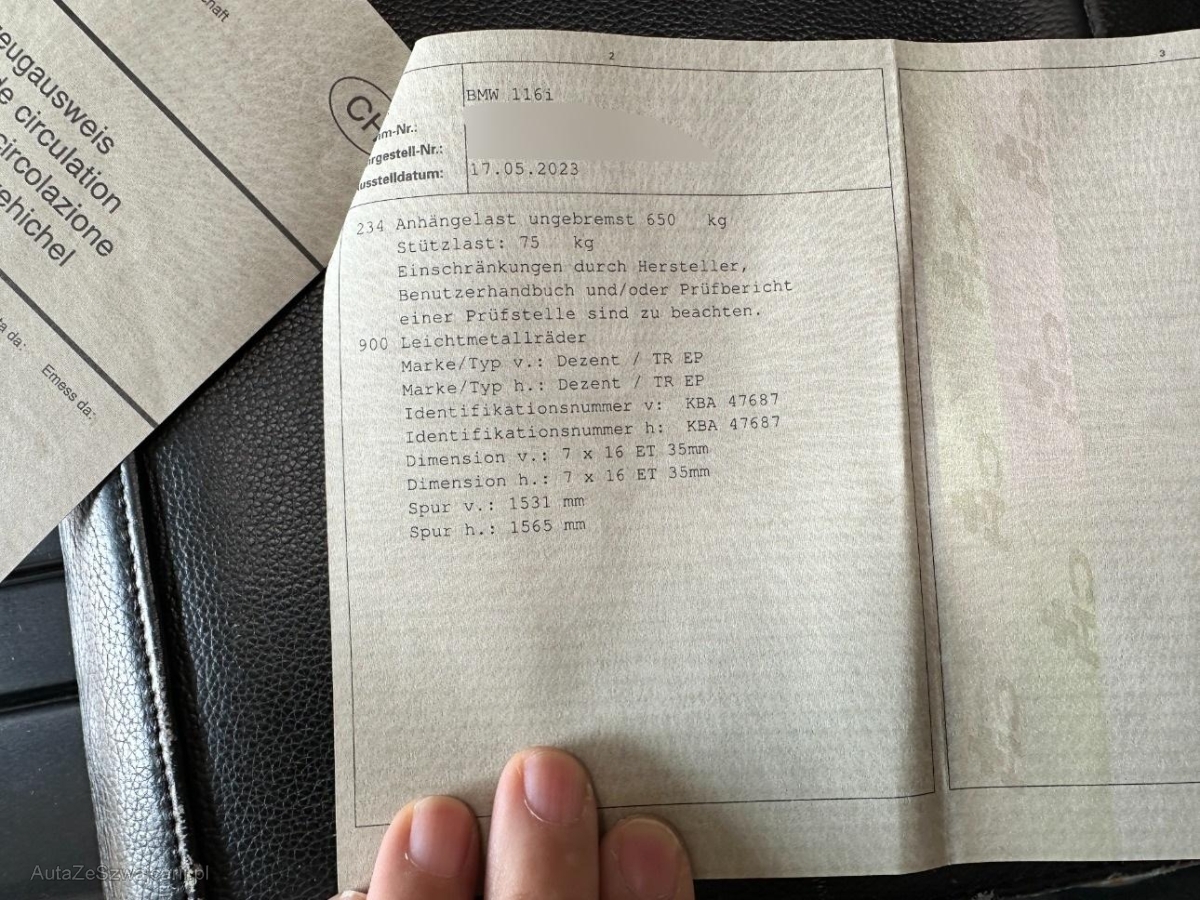 schaft
zeugausweis
de circulation
circolazione
vehichel
CH
ta da:
Emess da:
2
3
BMW 116i
mm-Nr.:
hrgestell-Nr.:
usstelldatum:
17.05.2023
234 Anhängelast ungebremst 650 kg
Stützlast: 75 kg
Einschränkungen durch Hersteller,
Benutzerhandbuch und/oder Prüfbericht
einer Prüfstelle sind zu beachten.
900 Leichtmetallräder
Marke/Typ v.: Dezent / TR EP
Marke/Typ h.: Dezent / TR EP
Identifikationsnummer v: KBA 47687
Identifikationsnummer h: KBA 47687
Dimension v.: 7 x 16 ET 35mm
Dimension h.: 7 x 16 ET 35mm
Spur v.: 1531 mm
Spur h.: 1565 mm
CH
CH
CH
CH
AutaZeSzwajcarii.pl